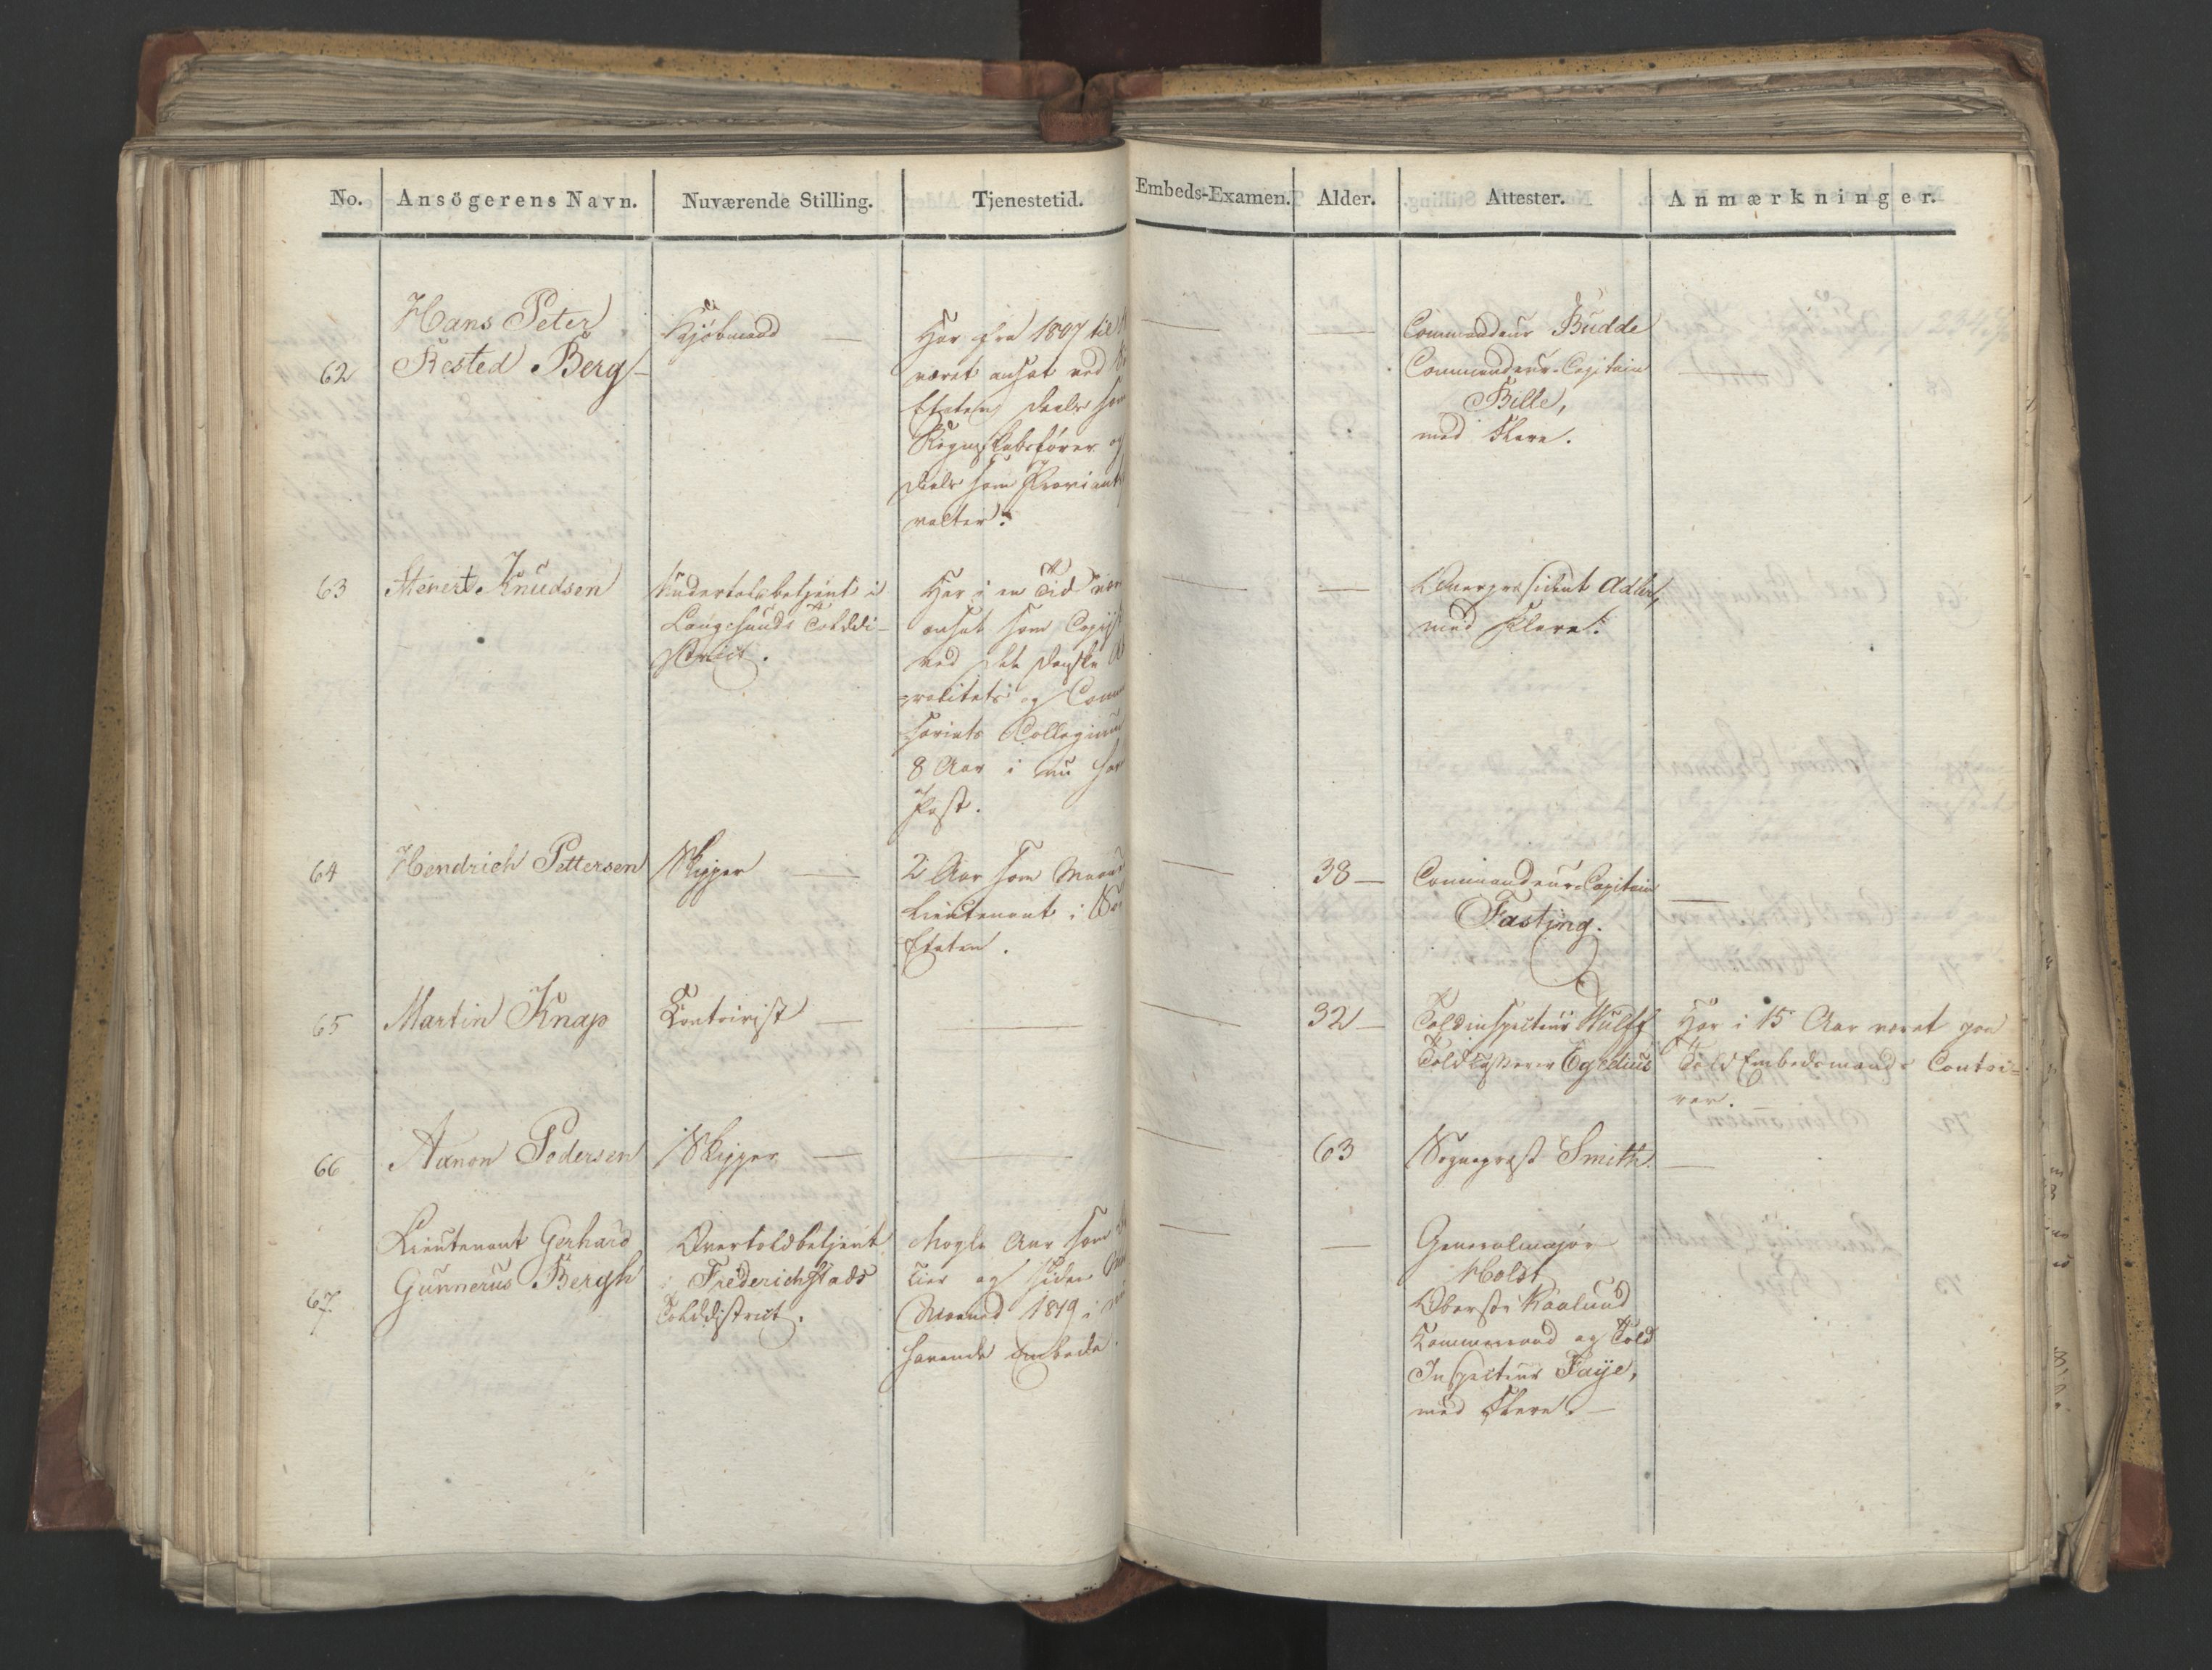 No. Ansögerens Navn. Nuværende Stilling. Tjenestetid. Embeds-Examen. Alder. Attester. Anmærkninger.
62
Hans Peter
Rested Berg
Kjöbmand —
Har fra 1807 til
været ansat ved
Etaten, deels som
Regnskabsförer og
deels som Proviant
valter.
—
—
Commandeur Budde
Commandeur-Capitain
Bille,
med Flere.
—
63
Knudsen
Undertoldbetjent i
Langesunds Tolddi-
strict.
Har i en Tid
ansat som Copiist
ved det danske
ralitets og
sariats Collegium
8 Aar i nu
Post.
—
—
Overpræsident Adler,
med Flere.
64
Hendrich Pettersen
Skipper —
2 Aar som Maaneds
Lieutenant i
Etaten.
—
38 —
Commandeur-Capitain
Fasting.
—
65
Martin Knap
Contoirist —
—
—
32 —
Toldinspecteur Wulff
Toldkasserer Egidius
Har i 15 Aar været paa
Told Embedsmænds Contoi-
rer.
66
Aanon Pedersen
Skipper —
—
—
63
Sognepræst Smith.
—
67.
Lieutenant Gerhard
Gunnerus Bergh
Overtoldbetjent
i Frederichstads
Tolddistrict.
Nogle Aar som
cier og siden
Maaned 1819 i
havende Embede.
—
—
Generalmajor
Holst,
Oberst Kaalund
Kammerraad og Told
Inspecteur Faÿe,
med Flere. —